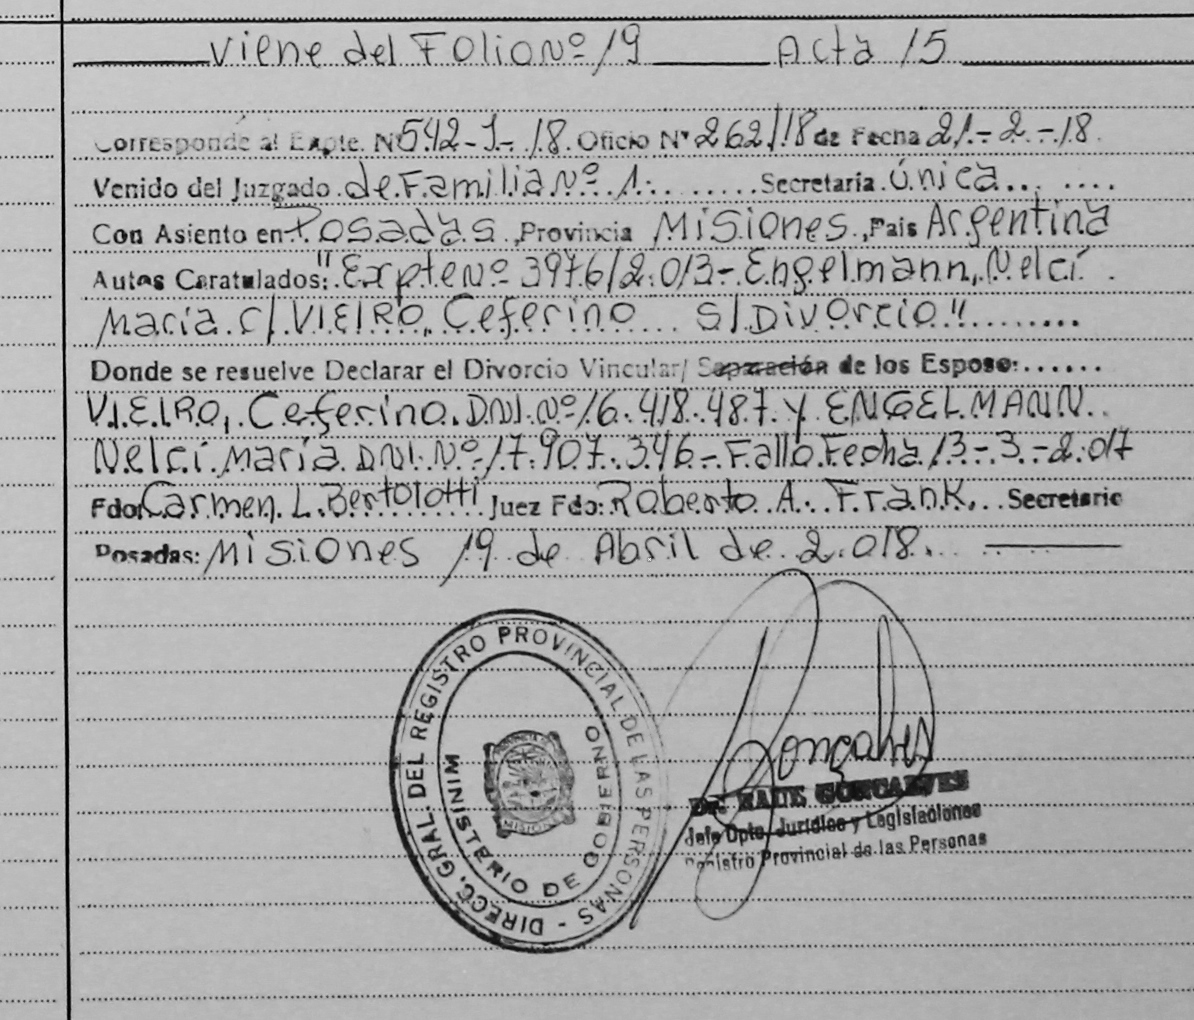 Viene del Folio Nº 19 Acta 15
Corresponde al Expte. Nº 542-J-18. Oficio Nº 262/18 de Fecha 21-2-18.
Venido del Juzgado de Familia Nº 1. Secretaría única
Con Asiento en Posadas, Provincia Misiones, País Argentina
Autos Caratulados: "Expte Nº 3976/2.013- Engelmann, Nelcí
María c/ VIEIRO, Ceferino S/ Divorcio"
Donde se resuelve Declarar el Divorcio Vincular/ Separación de los Esposo:
VIEIRO, Ceferino. DNI. Nº 16.418.487. y ENGELMANN.
Nelcí María. DNI. Nº 17.907.346- Fallo Fecha 13-3-2.017
Fdo: Carmen. L. Bertolotti Juez Fdo: Roberto A. Frank. Secretario
Posadas: Misiones 19 de Abril de 2.018.
DIRECC. GRAL. DEL REGISTRO PROVINCIAL DE LAS PERSONAS -
MINISTERIO DE GOBIERNO
MISIONES
Gonçalves
Dr. RAUL GONCALVES
Jefe Dpto. Jurídico y Legislaciones
Registro Provincial de las Personas